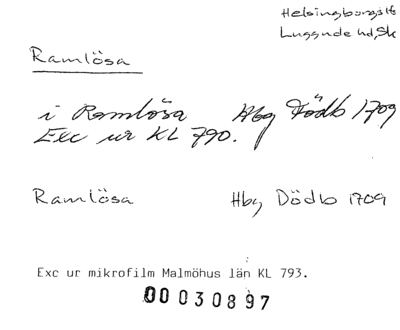 Helsingborgs lfs
Luggude hd, Sk
Ramlösa
i Ramlösa Hbg Dödb 1709
Exc ur KL 790.
Ramlösa Hbg Dödb 1709
Exc ur mikrofilm Malmöhus län KL 793.
00 030897